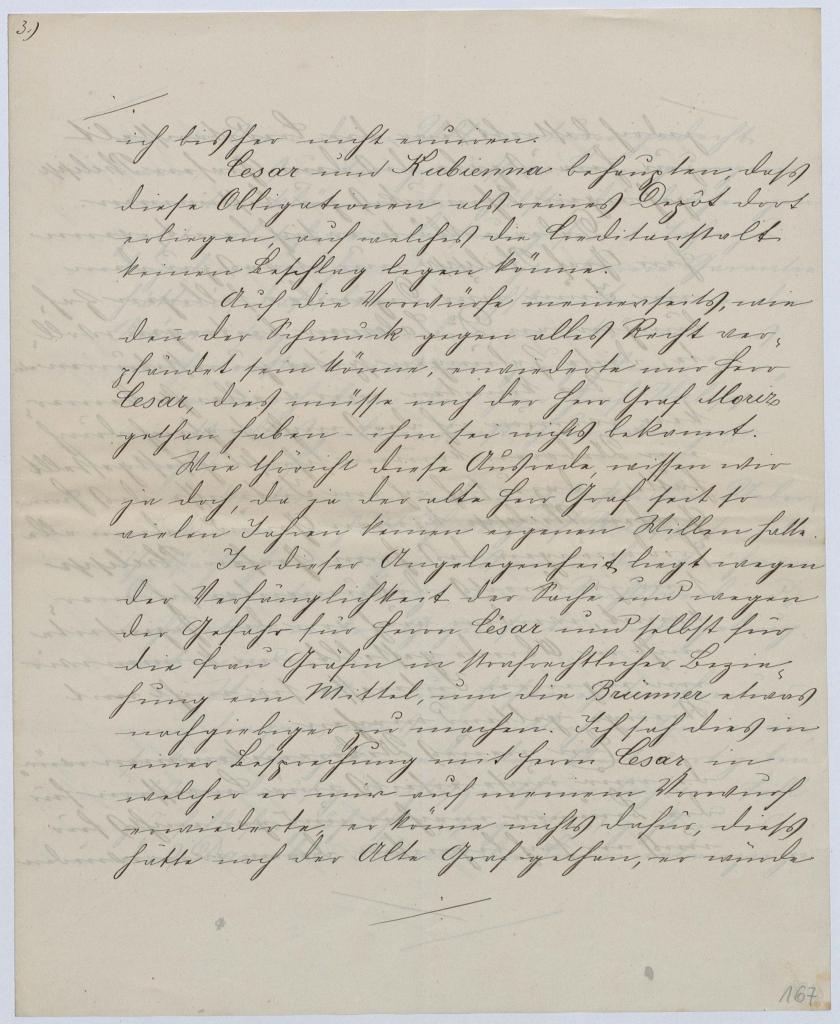 3.)
ich bisher nicht eruiren.
Cesar und Kubienna behaupten, dass
diese Obligationen als reines Depôt dort
erliegen, auf welches die Creditanstalt
keinen Beschlag legen könne.
Auf die Vorwürfe meinerseits, wie
den̄ der Schmuck gegen alles Recht ver-
pfändet sein könne, erwiederte mir Herr
Cesar, dies müsse noch der Herr Graf Moriz
gethan haben - ihm sei nichts bekannt.
Wie thöricht diese Ausrede, wissen wir
ja doch, da ja der alte Herr Graf seit so
vielen Jahren keinen eigenen Willen hatte.
In dieser Angelegenheit liegt wegen
der Verfänglichkeit der Sache und wegen
der Gefahr für Herrn César und selbst für
die Frau Gräfin in strafrechtlicher Bezie-
hung ein Mittel, um die Brünner etwas
nachgiebiger zu machen. Ich sah dies in
einer Besprechung mit Herrn Cesar, in
welcher er mir auf meinem Vorwurf
erwiederte, er könne nichts dafür, diess
hätte noch der Alte Graf gethan, er würde
167